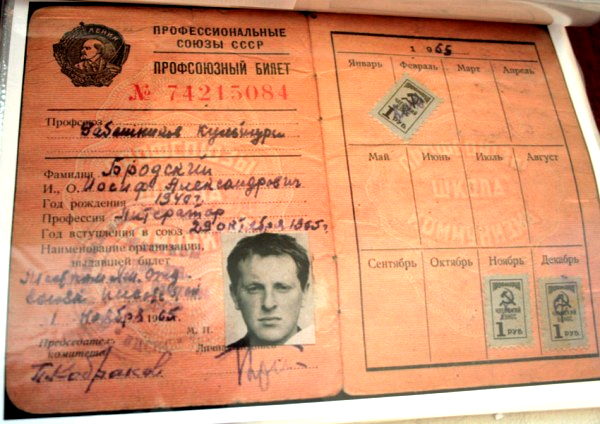 ЛЕНИН
ПРОФЕССИОНАЛЬНЫЕ
СОЮЗЫ СССР
ПРОФСОЮЗНЫЙ БИЛЕТ
№ 74215084
Профсоюз работников культуры
Фамилия Бродский
И., О. Иосиф Александрович
Год рождения 1940 г
Профессия литератор
Год вступления в союз 29 октября 1965 г.
Наименование организации,
выдавшей билет
1 ноября 1965 г.
М. П.
Председатель
комитета
Личная
1965
Январь Февраль Март Апрель
Май Июнь Июль Август
Сентябрь Октябрь Ноябрь Декабрь
1 РУБ.
1 РУБ.